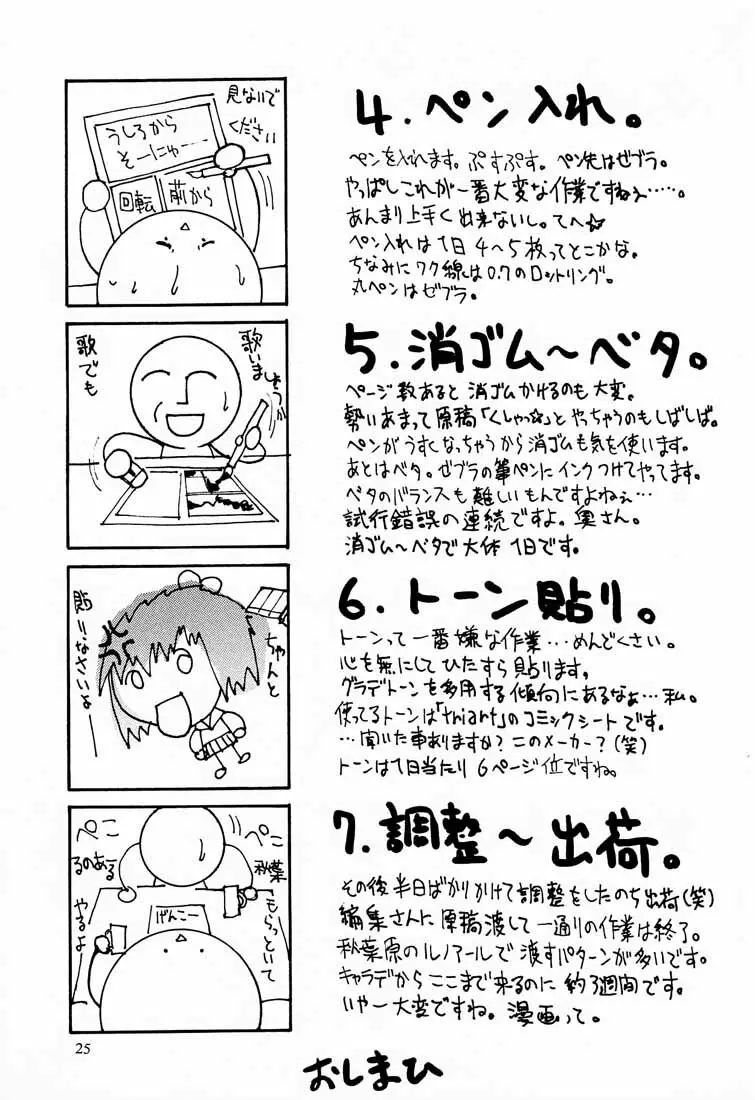 4.ペン入れ。
ペンを入れます。ぷすぷす。ペン先はゼブラ。
やっぱしこれが一番大変な作業ですねぇ……。
あんまり上手く出来ないし。てへ☆
ペン入れは1日4〜5枚ってとこかな。
ちなみにワク線は0.7のロットリング。
丸ペンはゼブラ。
見ないで
ください
うしろから
そーにゅー……
回転
前から
5.消ゴム〜ベタ。
ページ数あると消ゴムかけるのも大変。
勢いあまって原稿「くしゃっ☆」とやっちゃうのもしばしば。
ペンがうすくなっちゃうから消ゴムも気を使います。
あとはベタ。ゼブラの筆ペンにインクつけてやってます。
ベタのバランスも難しいもんですよねぇ…
試行錯誤の連続ですよ。奥さん。
消ゴム〜ベタで大体1日です。
歌でも
歌いましょうか
6.トーン貼り。
トーンって一番嫌な作業…めんどくさい。
心を無にしてひたすら貼ります。
グラデトーンを多用する傾向にあるなぁ…私。
使ってるトーンは「triart」のコミックシートです。
…聞いた事ありますか?このメーカー?(笑)
トーンは1日当たり6ページ位ですね。
ちゃんと
貼りなさいよー
7.調整〜出荷。
その後半日ばかりかけて調整をしたのち出荷(笑)
編集さんに原稿渡して一通りの作業は終了。
秋葉原のルノアールで渡すパターンが多いです。
キャラデからここまで来るのに約3週間です。
いやー大変ですね。漫画って。
ぺこ
ぺこ
秋葉
るのある
もらっといて
やるよ
げんこー
25
おしまひ